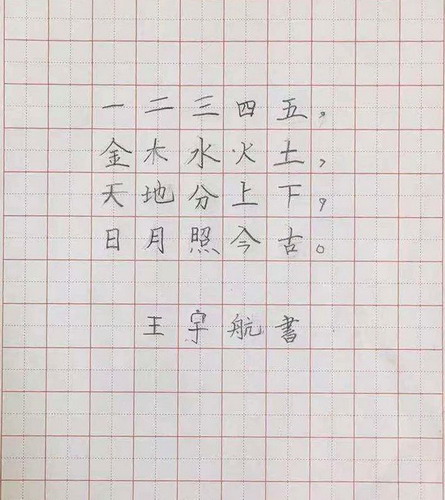 一二三四五，
金木水火土，
天地分上下，
日月照今古。
王宇航書